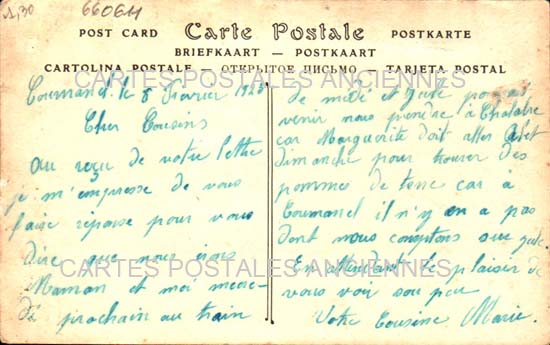 1,30
66064
Carte Postale
POST CARD
POSTKARTE
BRIEFKAART — POSTKAART
CARTOLINA POSTALE — ОТКРЫТОЕ ПИСЬМО — TARJETA POSTAL
CARTES POSTALES ANCIENNES
le 8 Fevrier
Cher Cousins
Au reçu de votre lettre
je m'empresse de vous
faire réponse pour vous
dire que nous irons
Maman et moi mecre-
di prochain au train
de midi et
venir nous prendre à Chalabre
car Marguerite doit aller
dimanche pour trouver des
pommes de terre car à
il n'y en a pas
dont nous comptons sur
En attendant le plaisir de
vous voir sou peu
Votre Cousine Marie.
CARTES POSTALES ANCIENNES